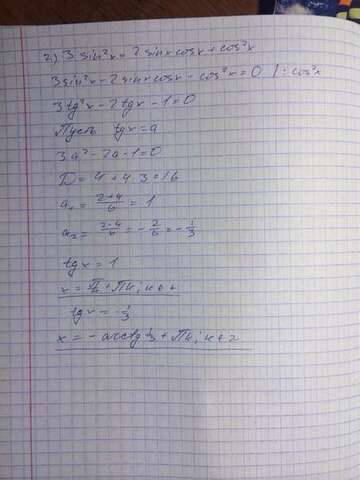 2) 3 sin²x = 2 sinx cosx + cos²x
3 sin²x - 2 sinx cosx - cos²x = 0 | : cos²x
3 tg²x - 2 tgx - 1 = 0
Пусть tgx = a
3a² - 2a - 1 = 0
D = 4 + 4·3 = 16
a₁ = (2+4)/6 = 1
a₂ = (2-4)/6 = -2/6 = -1/3
tgx = 1
x = π/4 + πk; k∈z
tgx = -1/3
x = - arctg 1/3 + πk; k∈z